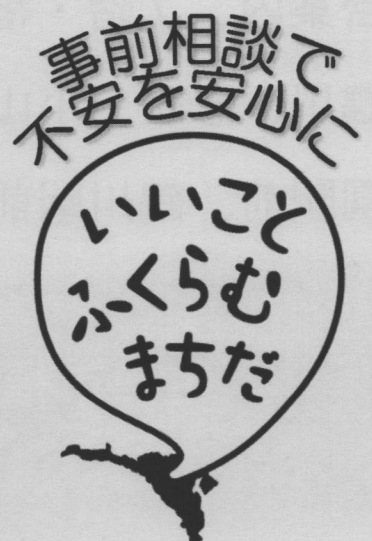 事前相談で
不安を安心に
いいこと
ふくらむ
まちだ